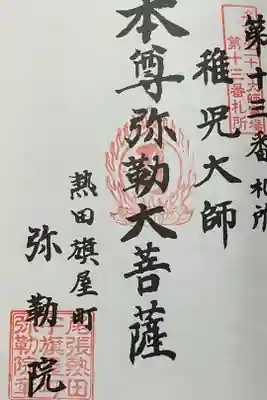 第十三番札所
稚児大師
本尊弥勒大菩薩
熱田旗屋町
弥勒院
第十三番札所
尾張熱田
弥勒院